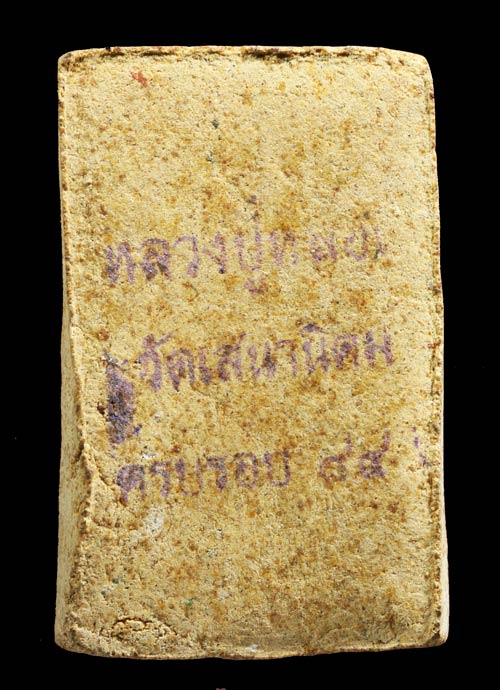 หลวงปู่หมุน
วัดเสนานิคม
ครบรอบ ๘๔